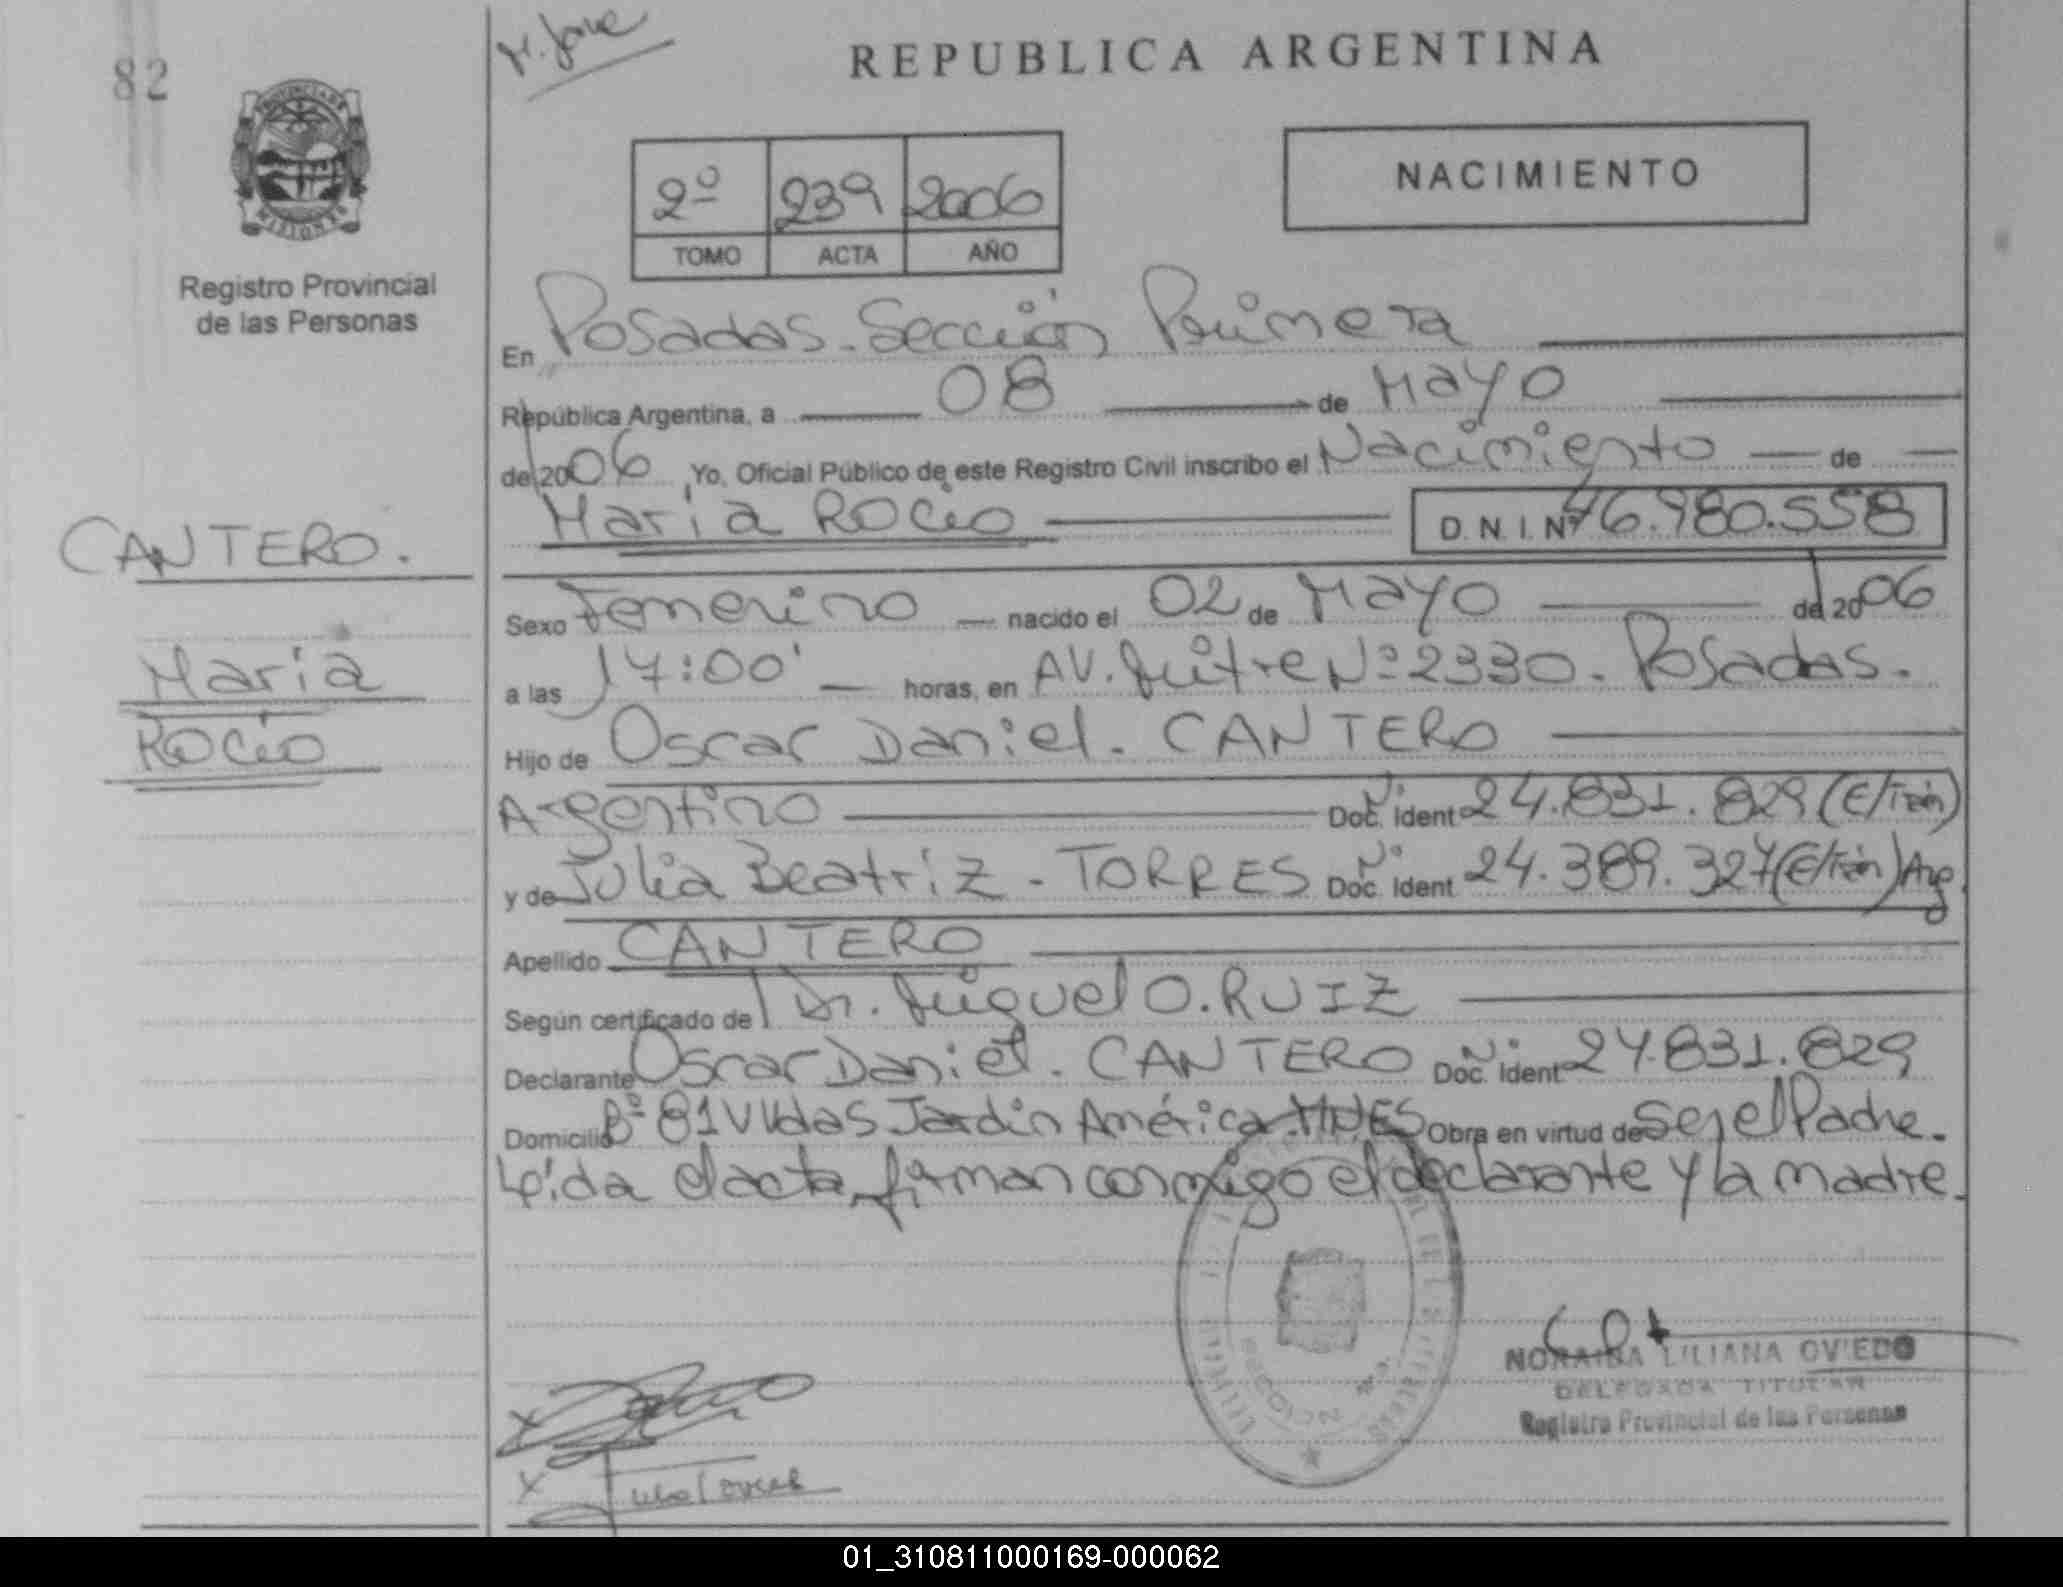 82
REPUBLICA ARGENTINA
PROVINCIA DE
MISIONES
Registro Provincial
de las Personas
2º 239 2006
TOMO ACTA AÑO
NACIMIENTO
En Posadas. Sección Primera
República Argentina, a 08 de Mayo
de 2006 Yo, Oficial Público de este Registro Civil inscribo el Nacimiento de
María Rocío D.N.I. Nº 46.980.558
CANTERO.
María
Rocío
Sexo Femenino nacido el 02 de Mayo de 2006
a las 17:00' horas, en AV. Mitre Nº 2330. Posadas.
Hijo de Oscar Daniel. CANTERO
Argentino Doc. Ident Nº 24.831.829 (E/Trám)
y de Julia Beatriz - TORRES Doc. Ident Nº 24.389.327 (E/Trám) Arg.
Apellido CANTERO
Según certificado de Dr. Miguel O. RUIZ
Declarante Oscar Daniel. CANTERO Doc. Ident Nº 24.831.829
Domicilio Bº 81 Vvdas Jardín América. MNES Obra en virtud de Ser el Padre.
Leída el acta, firman conmigo el declarante y la madre.
NORAIDA LILIANA OVIEDO
DELEGADA TITULAR
Registro Provincial de las Personas
01_310811000169-000062